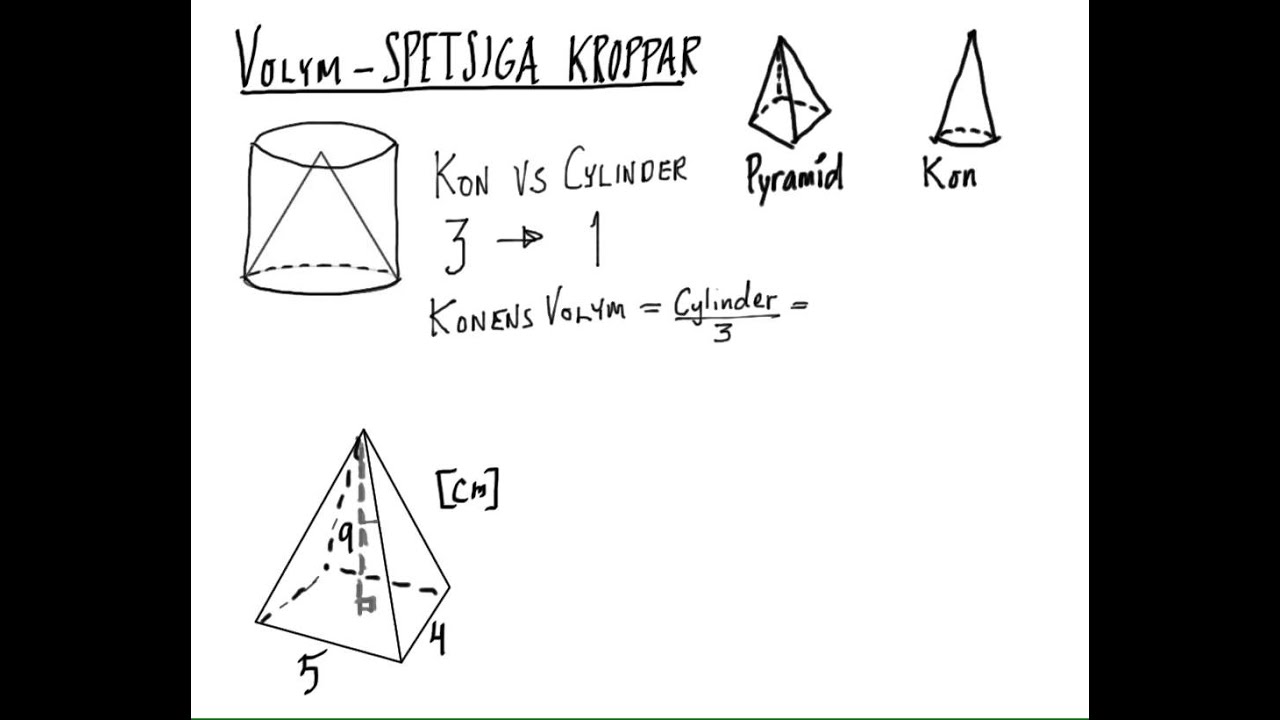 VOLYM – SPETSIGA KROPPAR
Pyramid
Kon
KON VS CYLINDER
3 → 1
KONENS VOLYM = Cylinder/3 =
[cm]
9
4
5